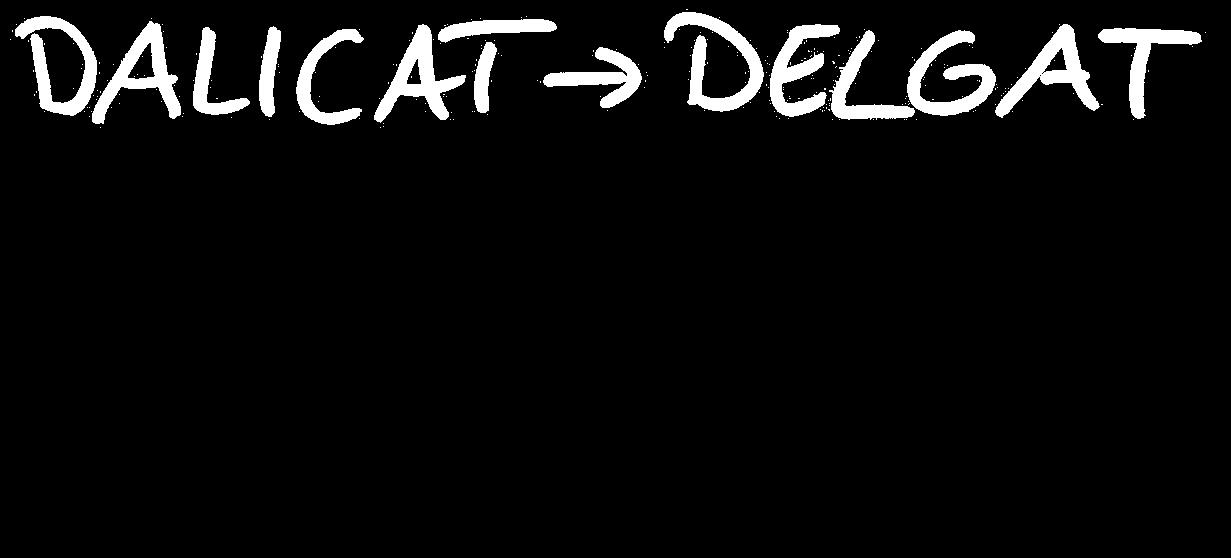 DALICAT → DELGAT